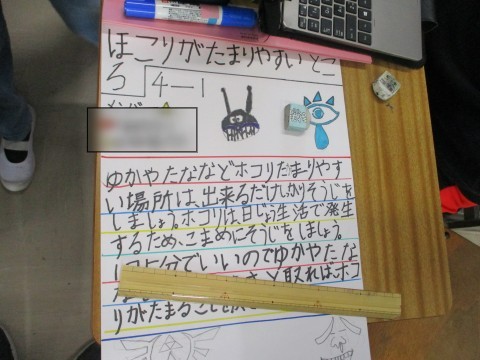 ほこりがたまりやすいとこ
ろ 4－1
メンバー
ゆかやたななどホコリがたまりやす
い場所は、出来るだけしっかりそうじを
しましょう。ホコリは日じょう生活で発生
するため、こまめにそうじをしましょう。
1日5分でいいのでゆかやたな
取れば、ホコ
りがたまること